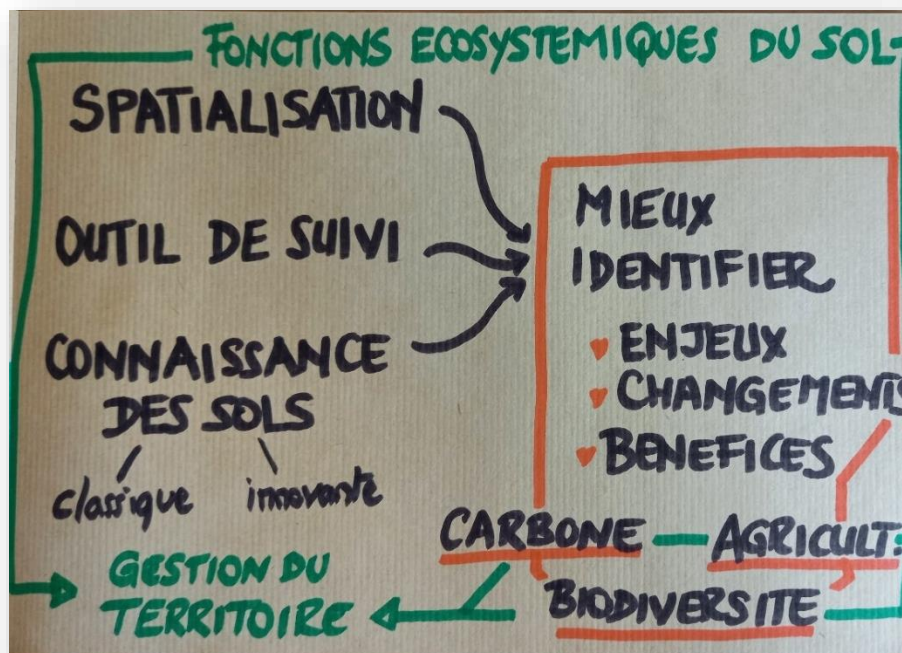 FONCTIONS ECOSYSTEMIQUES DU SOL
SPATIALISATION
OUTIL DE SUIVI
CONNAISSANCE
DES SOLS
classique innovante
MIEUX
IDENTIFIER
ENJEUX
CHANGEMENTS
BENEFICES
CARBONE AGRICULT.
BIODIVERSITE
GESTION DU
TERRITOIRE